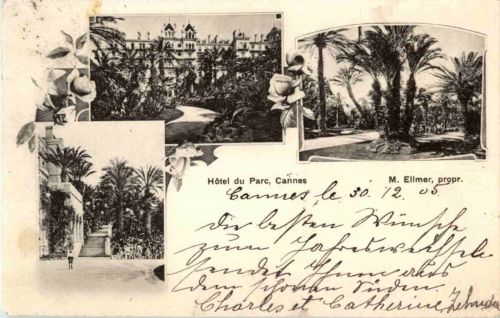 Hôtel du Parc, Cannes
M. Ellmer, propr.
Cannes, le 30. 12. 05
die besten Wünsche
zum Jahreswechsel
sendet Ihnen aus
dem schönen Süden.
Charles et Catherine